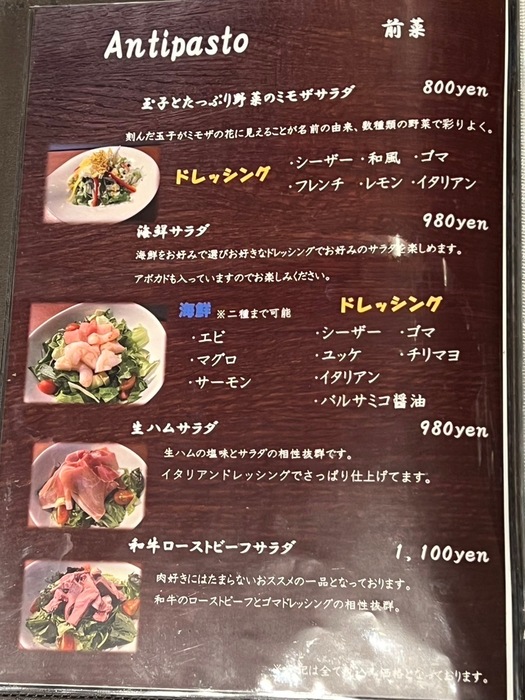 Antipasto 前菜
玉子とたっぷり野菜のミモザサラダ 800yen
刻んだ玉子がミモザの花に見えることが名前の由来、数種類の野菜で彩りよく。
ドレッシング ・シーザー ・和風 ・ゴマ
・フレンチ ・レモン ・イタリアン
海鮮サラダ 980yen
海鮮をお好みで選びお好きなドレッシングでお好みのサラダを楽しめます。
アボカドも入っていますのでお楽しみください。
海鮮 ※二種まで可能 ドレッシング
・エビ ・シーザー ・ゴマ
・マグロ ・ユッケ ・チリマヨ
・サーモン ・イタリアン
・バルサミコ醤油
生ハムサラダ 980yen
生ハムの塩味とサラダの相性抜群です。
イタリアンドレッシングでさっぱり仕上げてます。
和牛ローストビーフサラダ 1,100yen
肉好きにはたまらないおススメの一品となっております。
和牛のローストビーフとゴマドレッシングの相性抜群。
記は全て 込 価格となっております。